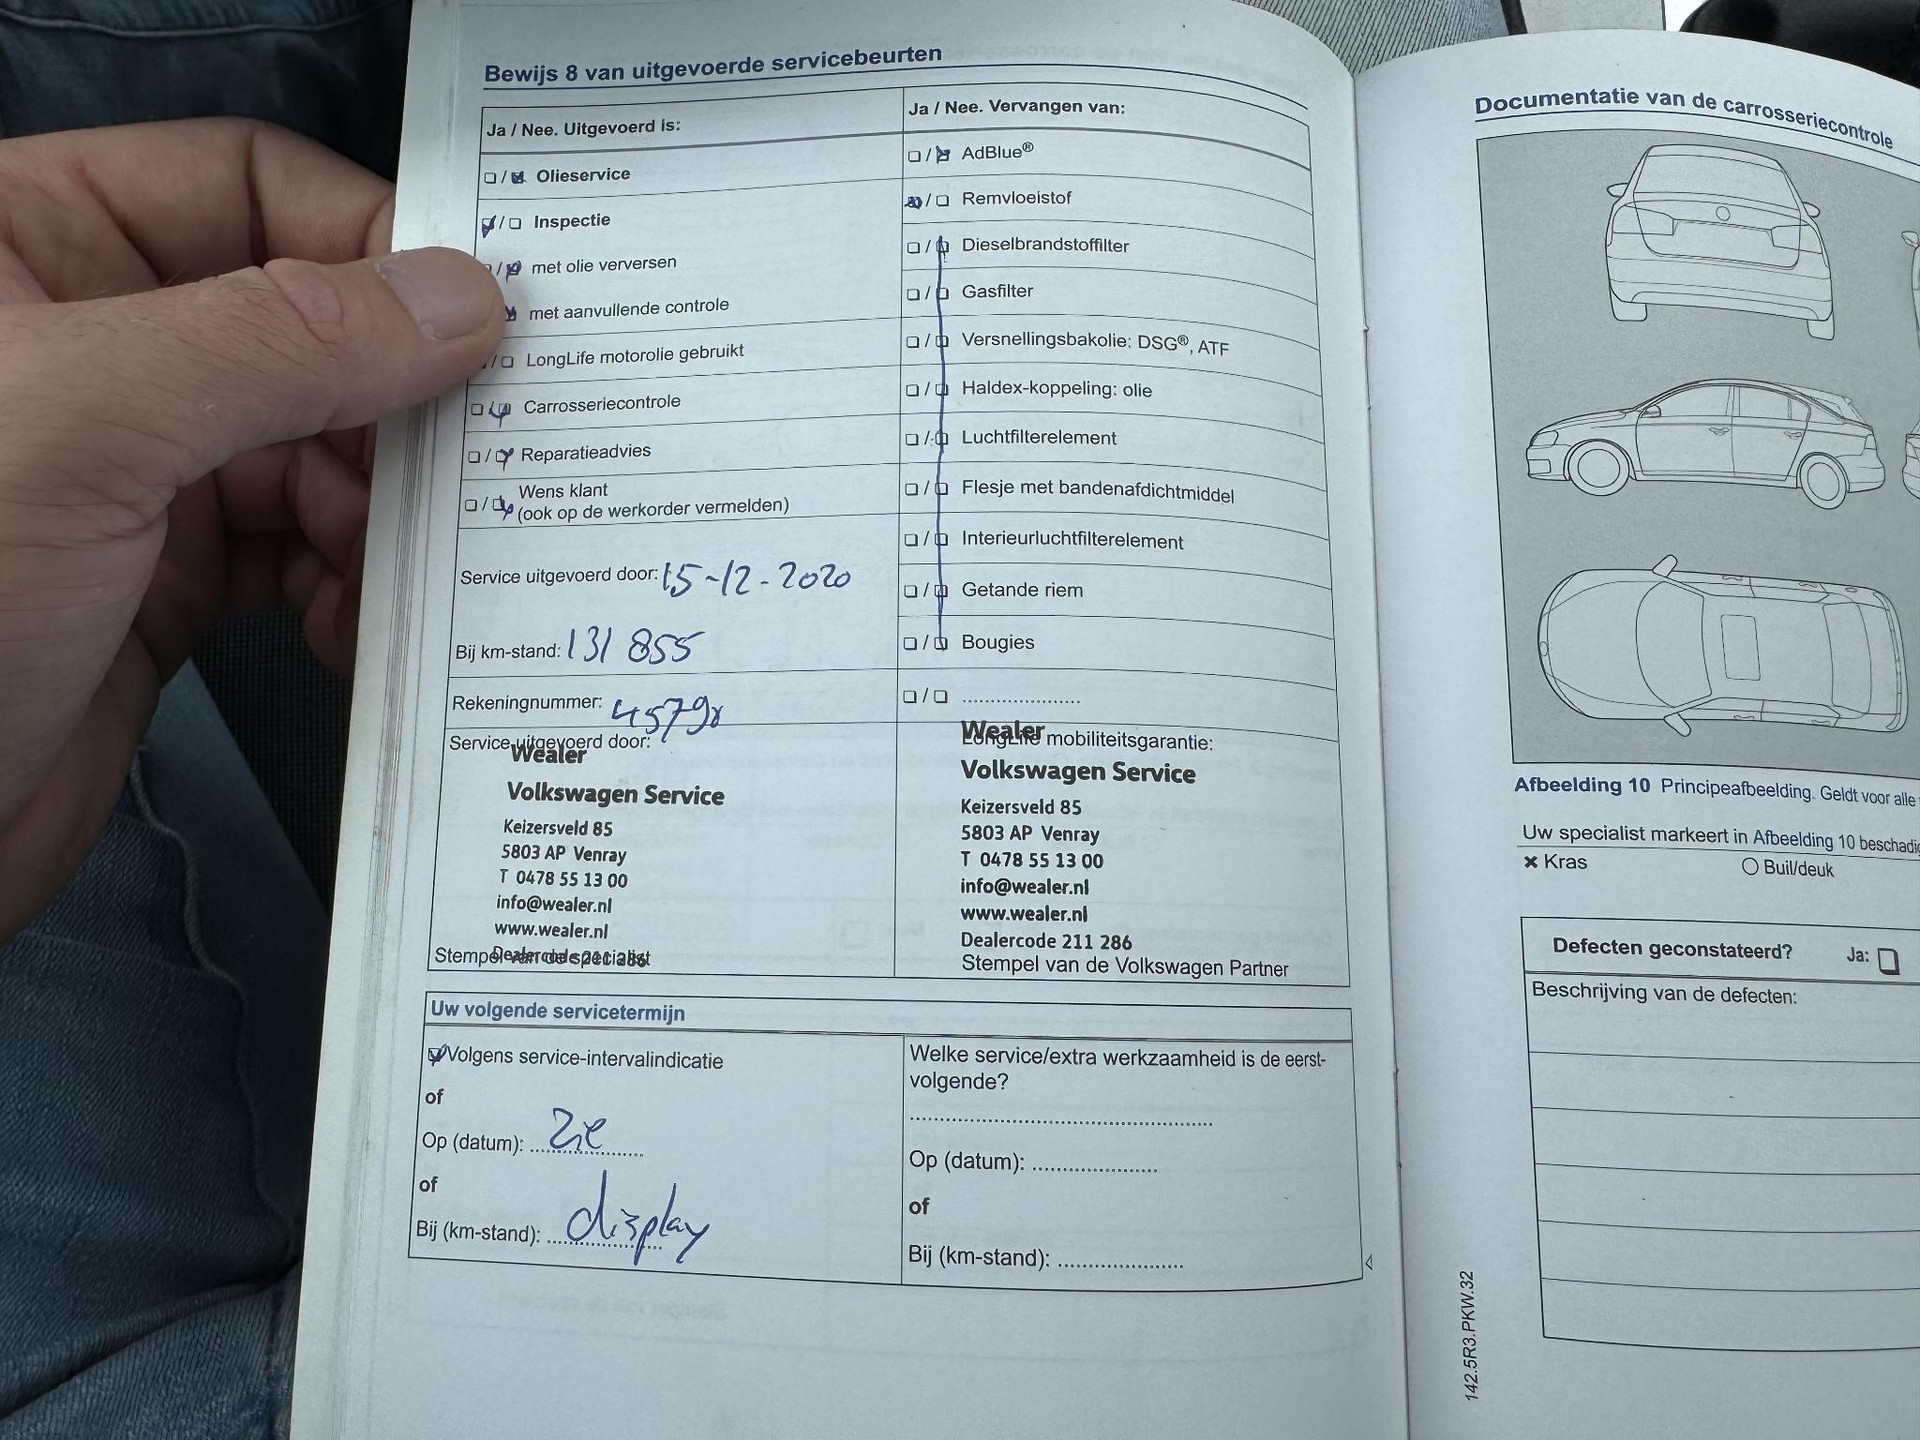 Bewijs 8 van uitgevoerde servicebeurten
Ja / Nee. Uitgevoerd is:
Olieservice
Inspectie
met olie verversen
met aanvullende controle
LongLife motorolie gebruikt
Carrosseriecontrole
Reparatieadvies
Wens klant
(ook op de werkorder vermelden)
Service uitgevoerd door: 15-12-2020
Bij km-stand: 131 855
Rekeningnummer:
Service uitgevoerd door:
Wealer
Volkswagen Service
Keizersveld 85
5803 AP Venray
T 0478 55 13 00
info@wealer.nl
www.wealer.nl
Dealercode 211 286
Stempel van de specialist
Ja / Nee. Vervangen van:
AdBlue®
Remvloeistof
Dieselbrandstoffilter
Gasfilter
Versnellingsbakolie: DSG®, ATF
Haldex-koppeling: olie
Luchtfilterelement
Flesje met bandenafdichtmiddel
Interieurluchtfilterelement
Getande riem
Bougies
.....................
LongLife mobiliteitsgarantie:
Wealer
Volkswagen Service
Keizersveld 85
5803 AP Venray
T 0478 55 13 00
info@wealer.nl
www.wealer.nl
Dealercode 211 286
Stempel van de Volkswagen Partner
Uw volgende servicetermijn
Volgens service-intervalindicatie
of
Op (datum): zie
of
Bij (km-stand): display
Welke service/extra werkzaamheid is de eerst-
volgende?
Op (datum): .....................
of
Bij (km-stand): .....................
Documentatie van de carrosseriecontrole
Afbeelding 10 Principeafbeelding. Geldt voor alle
Uw specialist markeert in Afbeelding 10
Kras
Buil/deuk
Defecten geconstateerd? Ja:
Beschrijving van de defecten:
142.5R3.PKW.32